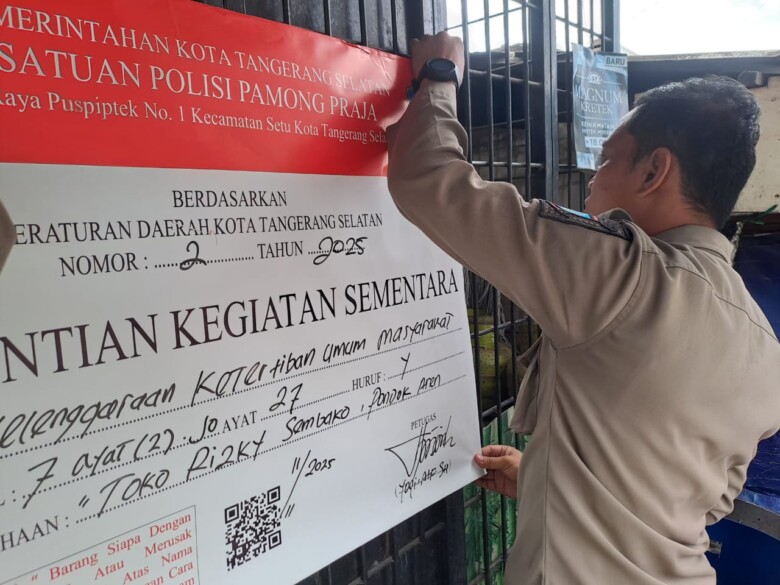 MERINTAHAN KOTA TANGERANG SELATAN
SATUAN POLISI PAMONG PRAJA
Raya Puspiptek No. 1 Kecamatan Setu Kota Tangerang Sela
BERDASARKAN
ERATURAN DAERAH KOTA TANGERANG SELATAN
NOMOR : 2 TAHUN 2025
NTIAN KEGIATAN SEMENTARA
elenggaraan Ketertiban Umum Masyarakat
: 7 ayat (2) : Jo AYAT 27 HURUF : Y
HAAN : "TOKO RIZKY Sembako, Pondok Aren
11/2025
PETUGAS
" Barang Siapa Dengan
Atau Merusak
Atas Nama
gan Cara
BARU
MAGNUM
KRETEK